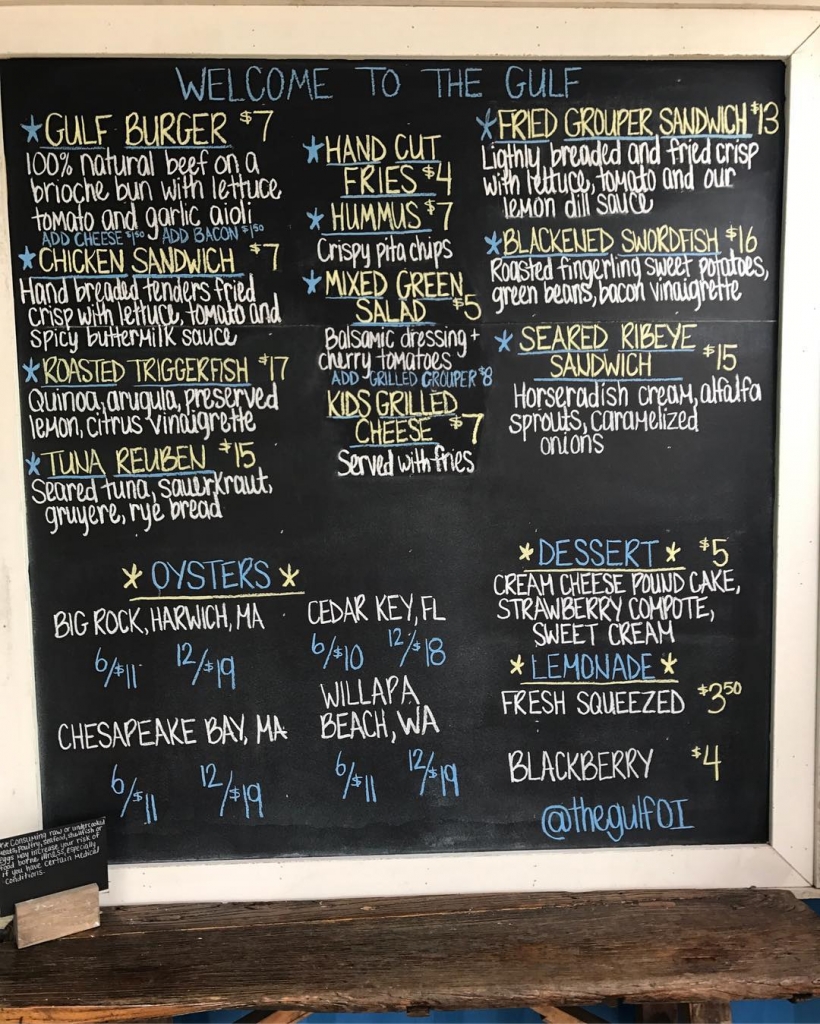 WELCOME TO THE GULF
*GULF BURGER $7
100% natural beef on a
brioche bun with lettuce
tomato and garlic aioli
ADD CHEESE $150 ADD BACON $150
*CHICKEN SANDWICH $7
Hand breaded tenders fried
crisp with lettuce, tomato and
spicy buttermilk sauce
*ROASTED TRIGGERFISH $17
Quinoa, arugula, preserved
lemon, citrus vinaigrette
*TUNA REUBEN $15
Seared tuna, sauerkraut,
gruyere, rye bread
*HAND CUT
FRIES $4
*HUMMUS $7
Crispy pita chips
*MIXED GREEN
SALAD $5
Balsamic dressing +
cherry tomatoes
ADD GRILLED GROUPER $8
KIDS GRILLED
CHEESE $7
Served with fries
*FRIED GROUPER SANDWICH $13
Ligthly breaded and fried crisp
with lettuce, tomato and our
lemon dill sauce
*BLACKENED SWORDFISH $16
Roasted fingerling sweet potatoes,
green beans, bacon vinaigrette
*SEARED RIBEYE
SANDWICH $15
Horseradish cream, alfalfa
sprouts, caramelized
onions
*OYSTERS*
BIG ROCK, HARWICH, MA
6/$11 12/$19
CHESAPEAKE BAY, MA
6/$11 12/$19
CEDAR KEY, FL
6/$10 12/$18
WILLAPA
BEACH, WA
6/$11 12/$19
*DESSERT* $5
CREAM CHEESE POUND CAKE,
STRAWBERRY COMPOTE,
SWEET CREAM
*LEMONADE*
FRESH SQUEEZED $350
BLACKBERRY $4
@thegulfOI
Consuming raw or undercooked
meats, poultry, seafood, shellfish or
eggs may increase your risk of
food borne illness, especially
if you have certain medical
conditions.